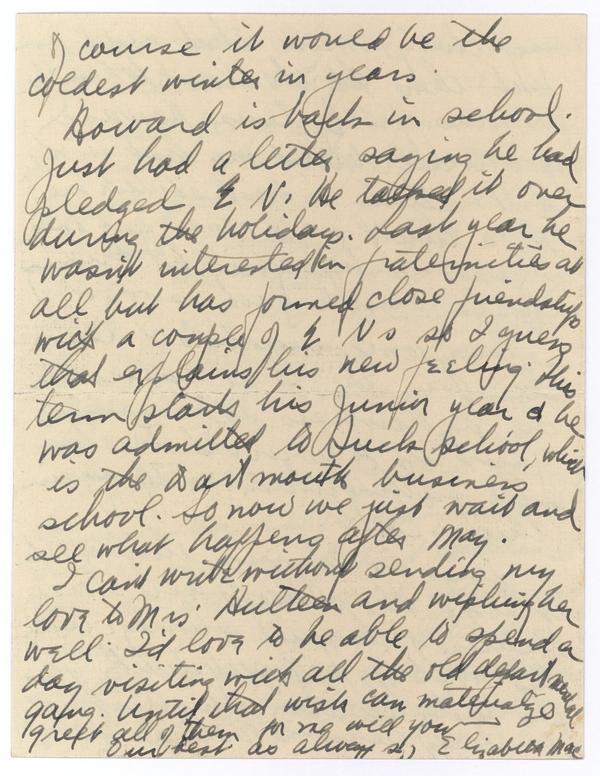 Of course it would be the
coldest winter in years.
Howard is back in school.
Just had a letter saying he had
pledged Σ N. He talked it over
during the holidays. Last year he
wasn't interested in fraternities at
all but has formed close friendships
with a couple of Σ Ns so I guess
that explains his new feeling. This
term starts his Junior year & he
was admitted to Tuck school, which
is the Dartmouth business
school. So now we just wait and
see what happens after May.
I can't write without sending my
love to Mrs. and wishing her
well. I'd love to be able to spend a
day visiting with all the old departmental
gang. Until that wish can materialize
greet all of them for me will you
Our best as always, Elizabeth Mac